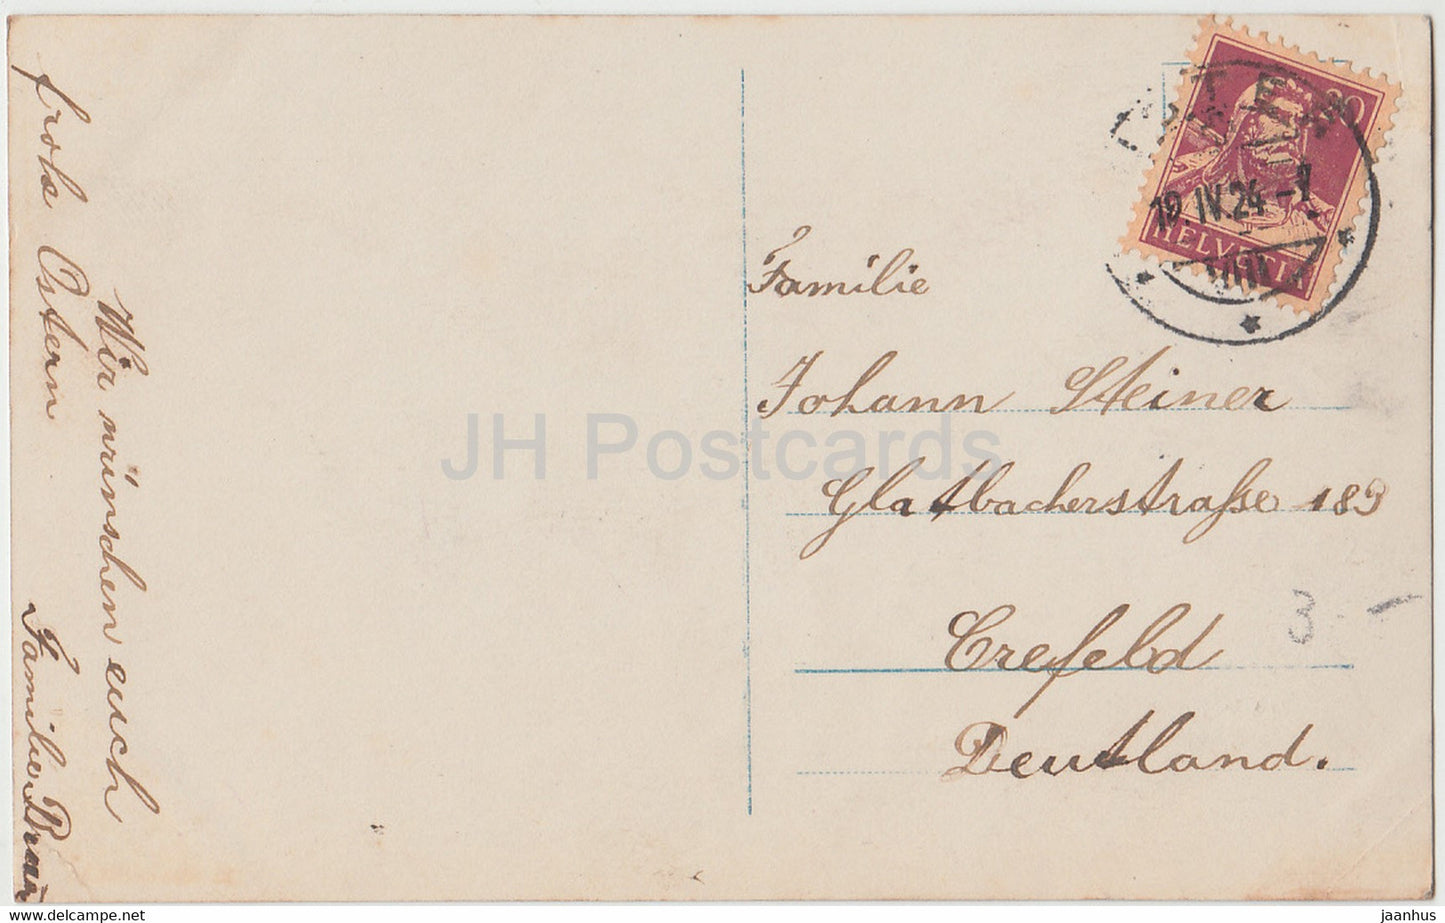 Wir wünschen euch
frohe Ostern
Familie
20
HELVETIA
19. IV. 24
Familie
Johann Steiner
Glatbacherstraße 189
Crefeld
Deutland.
3.-
JH Postcards
jaanhus